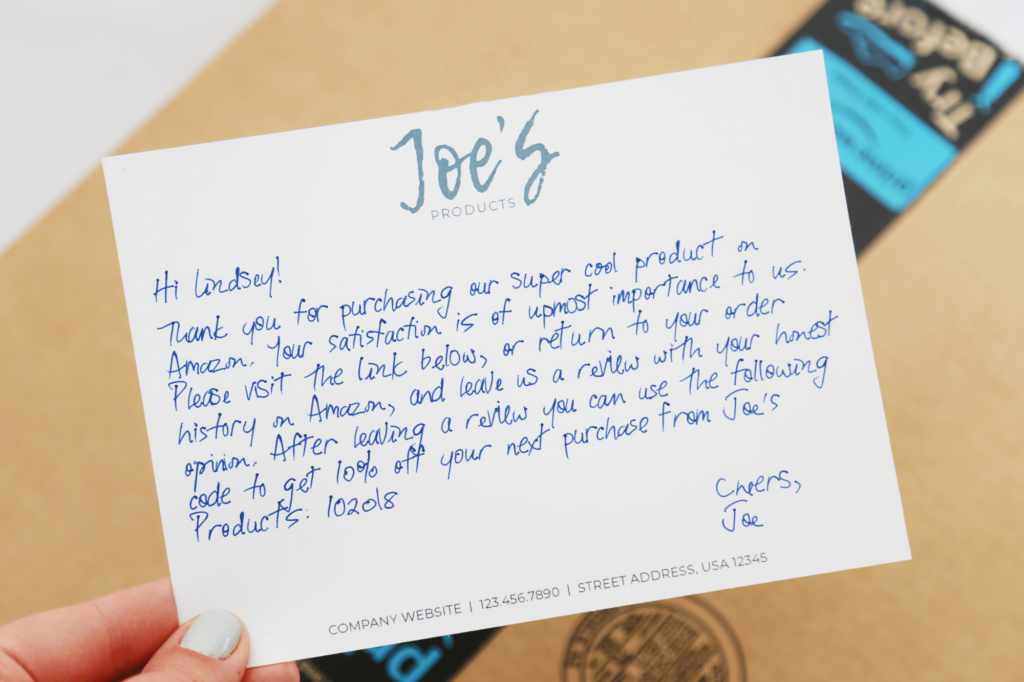 Try
Before
Joe's
PRODUCTS
Hi Lindsey!
Thank you for purchasing our super cool product on
Amazon. Your satisfaction is of upmost importance to us.
Please visit the link below, or return to your order
history on Amazon, and leave us a review with your honest
opinion. After leaving a review you can use the following
code to get 10% off your next purchase from Joe's
Products: 102018
Cheers,
Joe
COMPANY WEBSITE | 123.456.7890 | STREET ADDRESS, USA 12345